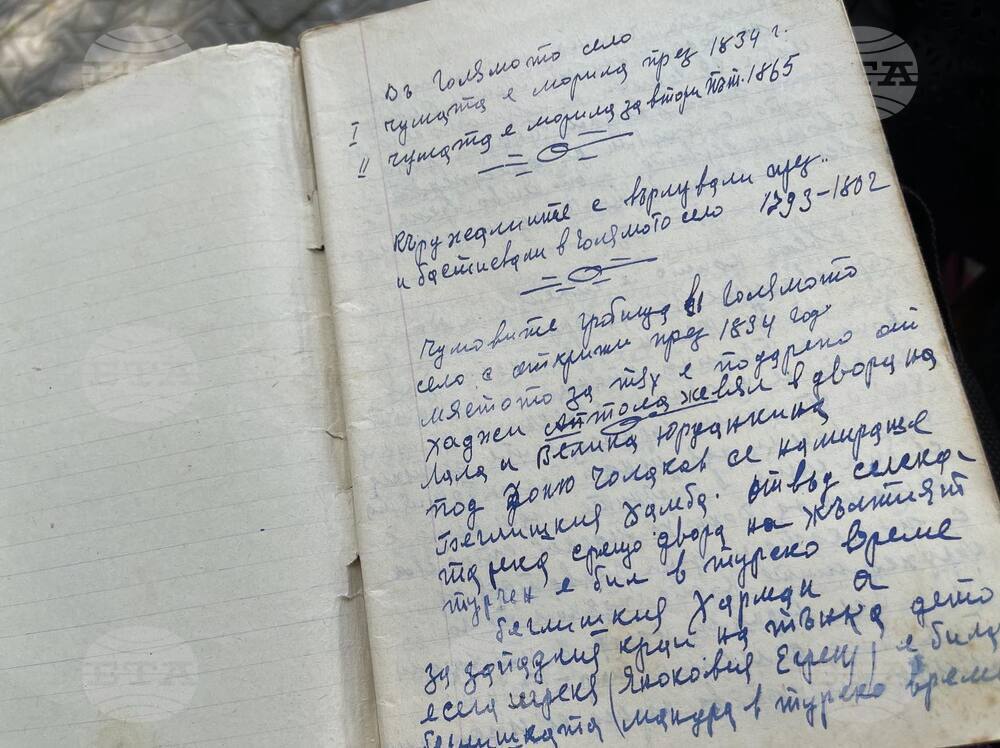 Въ Голямото село
I чумата е морила през 1834 г.
II чумата е морила за втори път. 1865
Кържалиите с върлували през..
и бастисвали в Голямото село 1793-1802
Чумовите гробища въ Голямото
село с открити през 1834 год
мястото за тях е подарено от
хаджи Аптола живял в двора на
Лала и Велика Юрданкина
под Доню Чолаков се намираше
Беглишкия Хамба. Отвъд селска-
та река срещо двора на жълтият
турчен е бил в турско време
беглишкия Харман а
за западния край на тънка дето
е сега егрека (Янковия Егрек) е била
(мандра в турско време